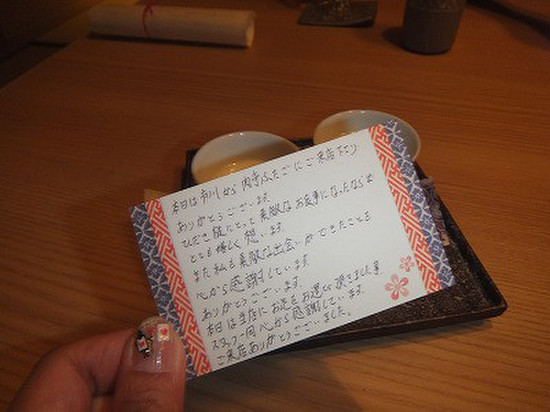 本日は市川から肉寺ふたごにご来店下さり
ありがとうございます。
ひださ様にとって素敵なお食事になったならば
とても嬉しく思います。
また私も素敵な出会いができたことを
心から感謝しています。
ありがとうございます。
本日は当店にお足をお運び頂きました事
スタッフ一同心から感謝しています。
ご来店ありがとうございました。